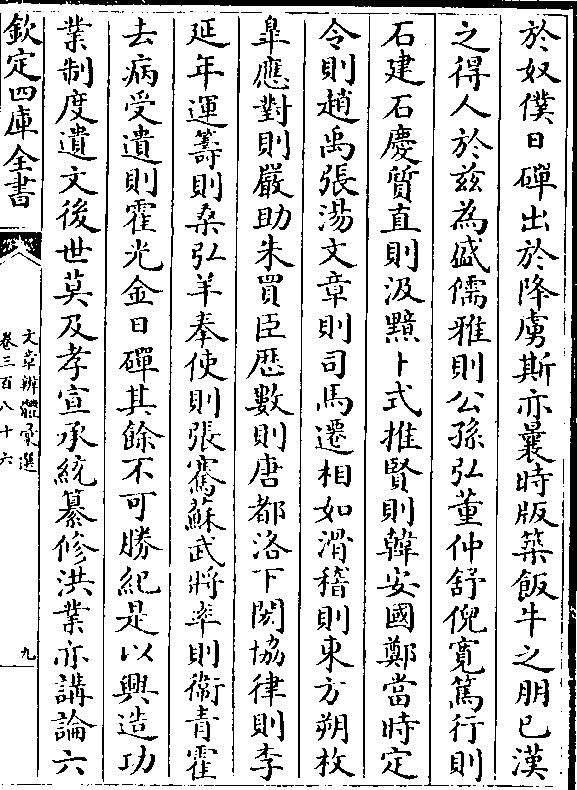 於奴僕日磾出於降虜斯亦曩時版築飯牛之朋已漢
之得人於兹為盛儒雅則公孫弘董仲舒倪寛篤行則
石建石慶質直則汲黯卜式推賢則韓安國鄭當時定
令則趙禹張湯文章則司馬遷相如滑稽則東方朔枚
臯應對則嚴助朱買臣厯數則唐都洛下閎協律則李
延年運籌則桑弘羊奉使則張騫蘇武將率則衛青霍
去病受遺則霍光金日磾其餘不可勝紀是以興造功
業制度遺文後世莫及孝宣承統纂修洪業亦講論六
欽定四庫全書
文章辨體彚選
卷三百八十六
九